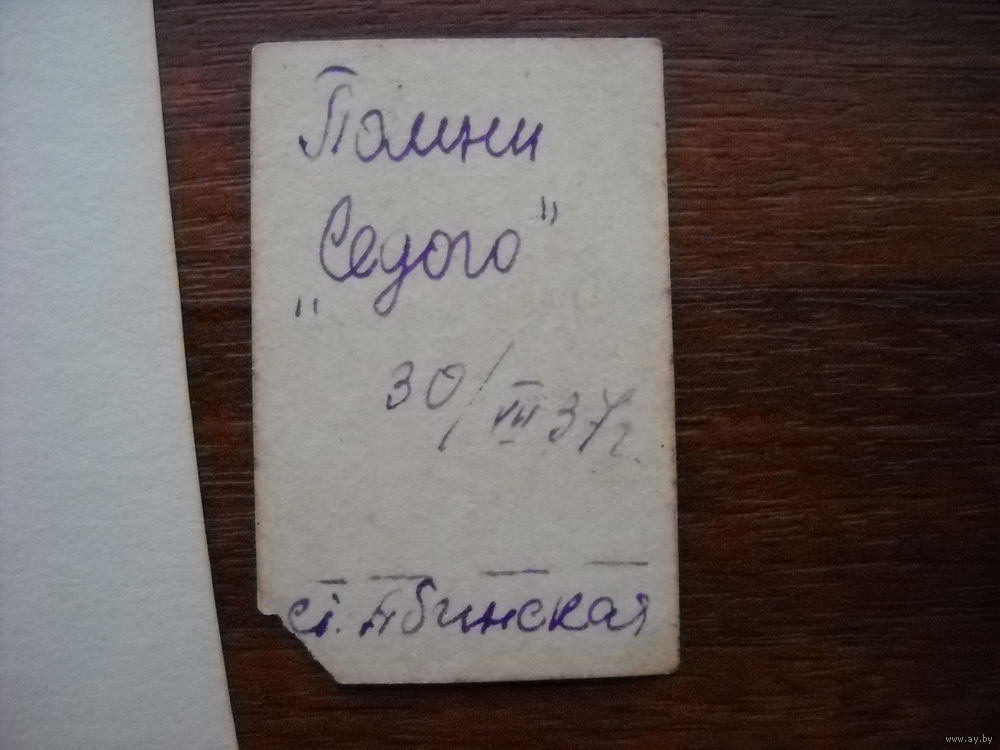 Помни
„Седого"
30/VIII 37г.
ст. Абинская
www.ay.by